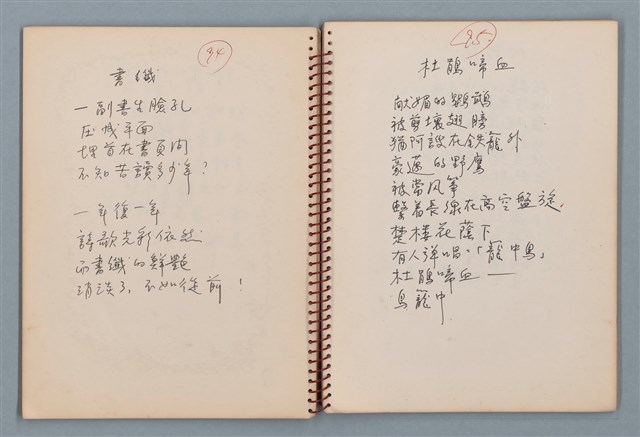 94
書籤
一副書生臉孔
压成平面
埋首在書頁间
不知苦讀多少年？
一年復一年
詩歌光彩依然
而書籤的鮮艷
消淡了，不如從前！
95
杜鵑啼血
献媚的鸚鵡
被剪壞翅膀
猶阿諛在鉄籠外
豪邁的野鷹
被当风筝
繫着長線在高空盤旋．
楚楼花蔭下
有人弹唱．「籠中鳥」
杜鵑啼血——
鳥籠中